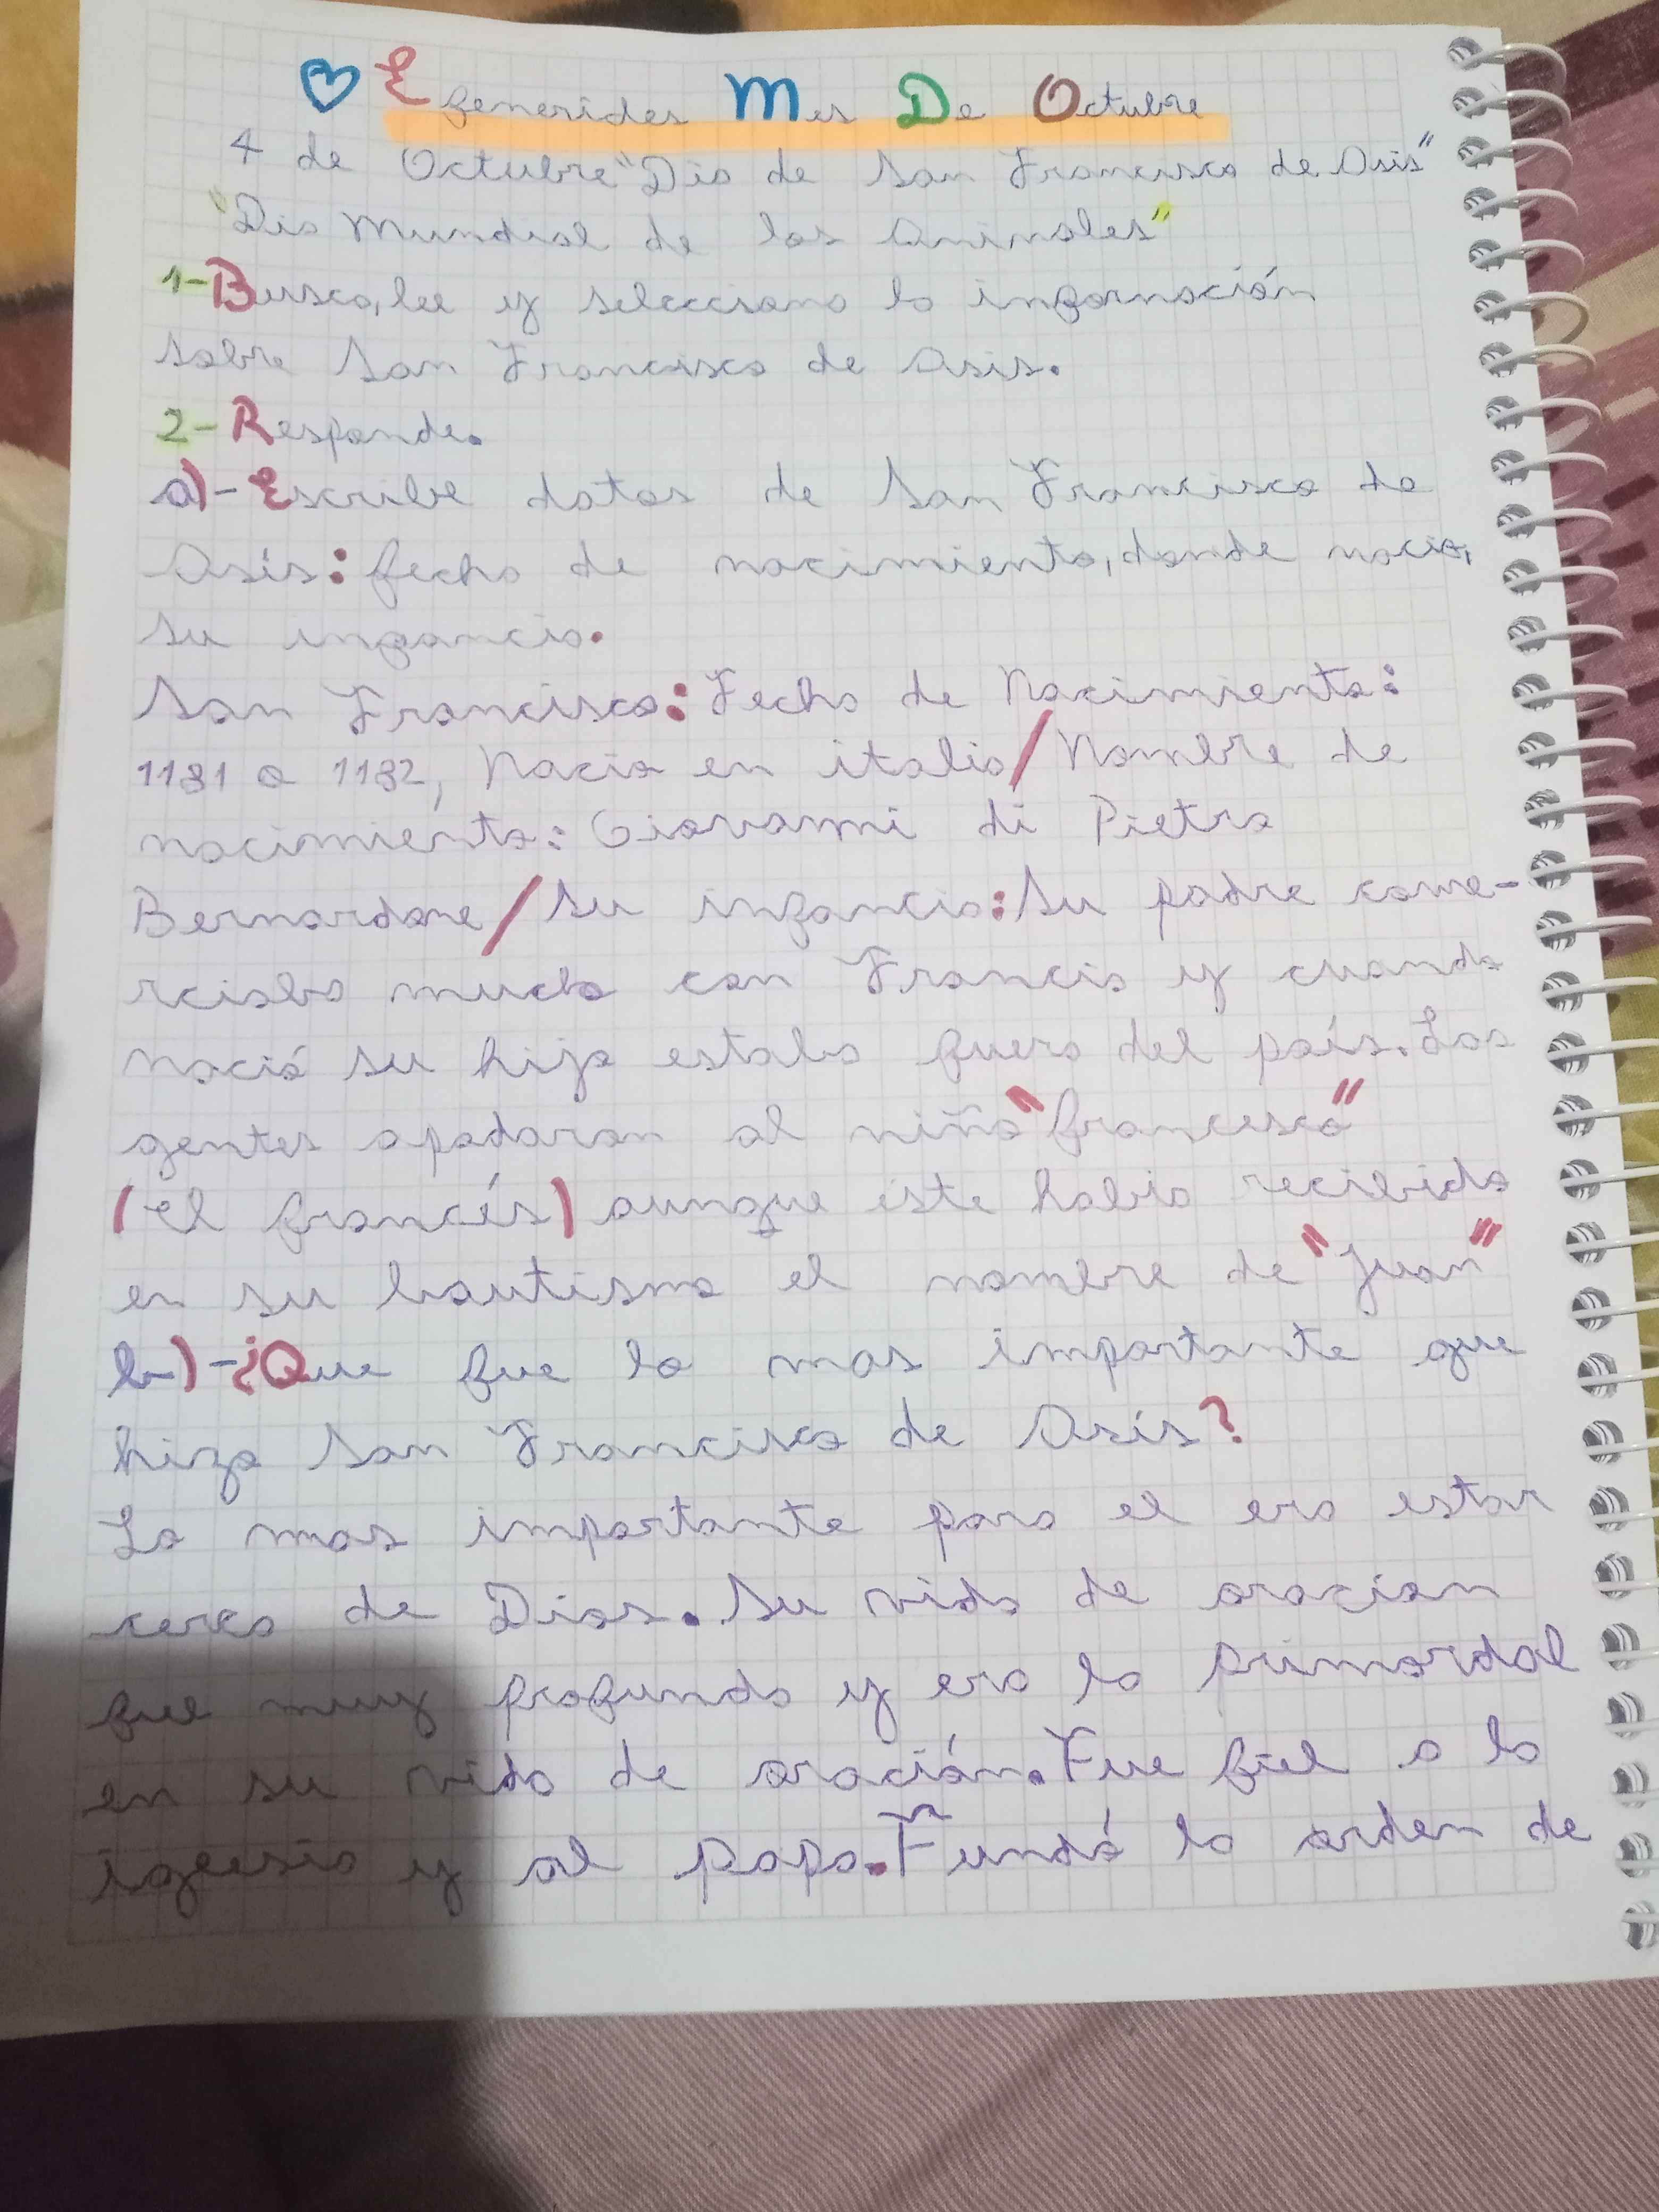 Efemerides Mes De Octubre
4 de Octubre "Dia de San Francisco de Asis"
"Dia Mundial de los Animales"
1-Busca, lee y selecciona la información
sobre San Francisco de Asis.
2-Responde.
a)-Escribe datos de San Francisco de
Asís: fecha de nacimiento, donde nacio,
su infancia.
San Francisco: Fecha de Nacimiento:
1181 o 1182, Nacio en italia/Nombre de
nacimiento: Giovanni di Pietro
Bernardone/Su infancia: Su padre come-
rciaba mucho con Francia y cuando
nació su hijo estaba fuera del país. Las
gentes apodaron al niño "francesco"
(el francés) aunque éste habia recibido
en su bautismo el nombre de "Juan"
b)-¿Que fue lo mas importante que
hizo San Francisco de Asís?
Lo mas importante para el era estar
cerca de Dios. Su vida de oracion
fue muy profunda y era lo primordal
en su vida de oración. Fue fiel a la
iglesia y al papa. Fundó la orden de